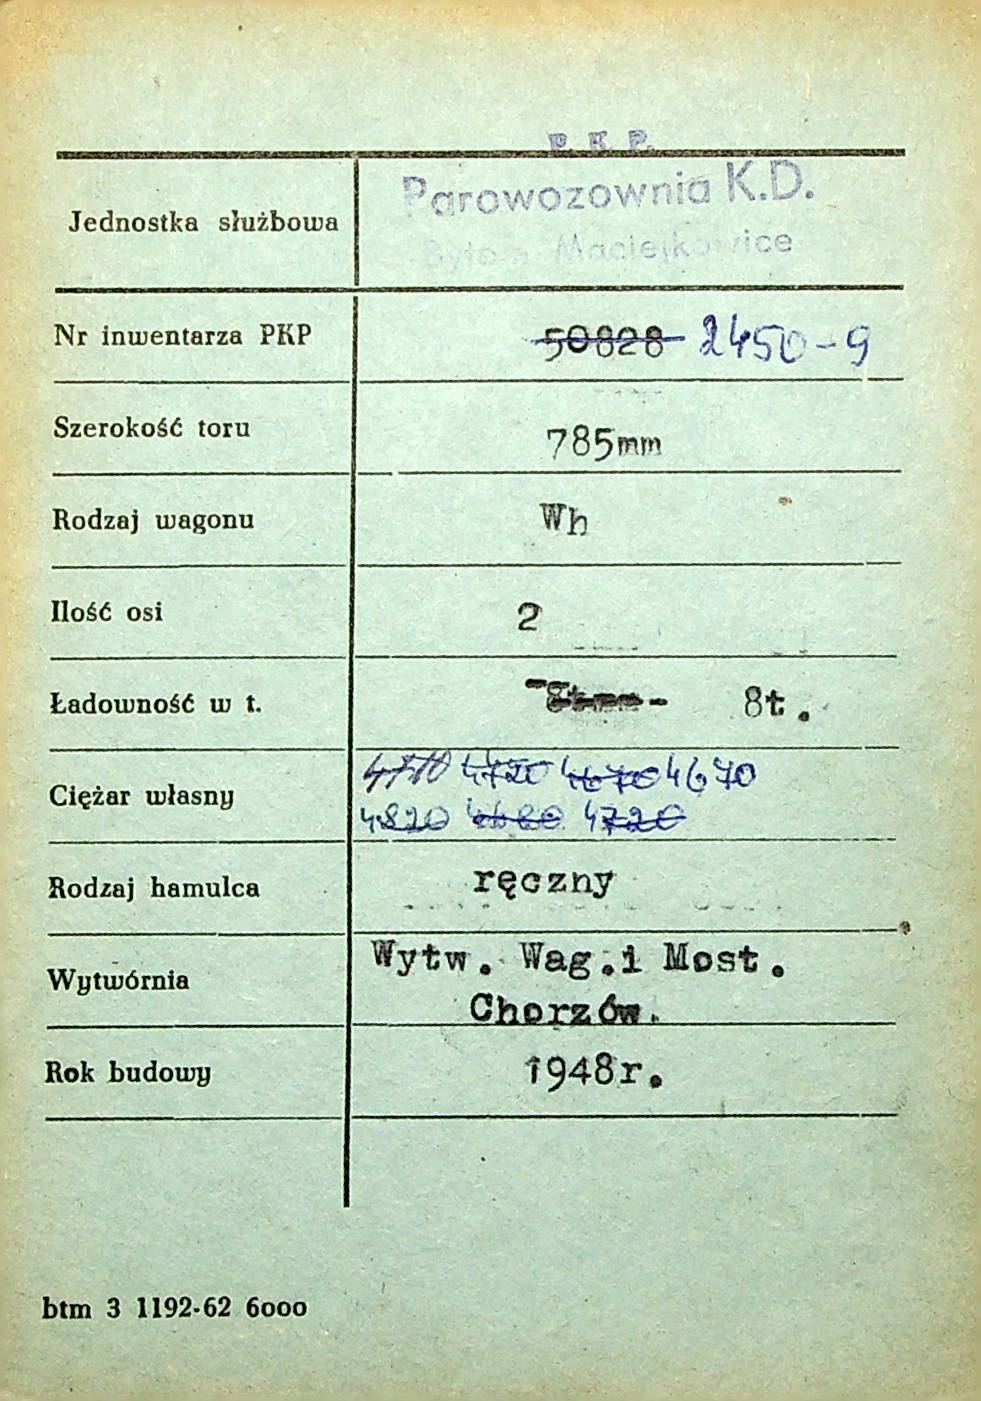 P. K. P.
Jednostka służbowa Parowozownia K.D.
Bytom Maciejkowice
Nr inwentarza PKP 50828 2450-9
Szerokość toru 785mm
Rodzaj wagonu Wh
Ilość osi 2
Ładowność w t. 8t.
Ciężar własny 4720 4670 4670
4820 4680 4720
Rodzaj hamulca ręczny
Wytwórnia Wytw. Wag.i Most.
Chorzów.
Rok budowy 1948r.
btm 3 1192-62 6000